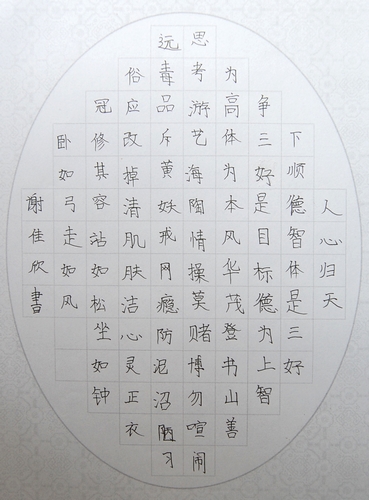 人心归天
下顺德智体是三好
争三好是目标德为上智
为高体为本风华茂登书山善
思考游艺海陶情操莫赌博勿喧闹
远毒品斥黄妖戒网瘾防泥沼陋习
俗应改掉清肌肤洁心灵正衣
冠修其容站如松坐如钟
卧如弓走如风
谢佳欣書